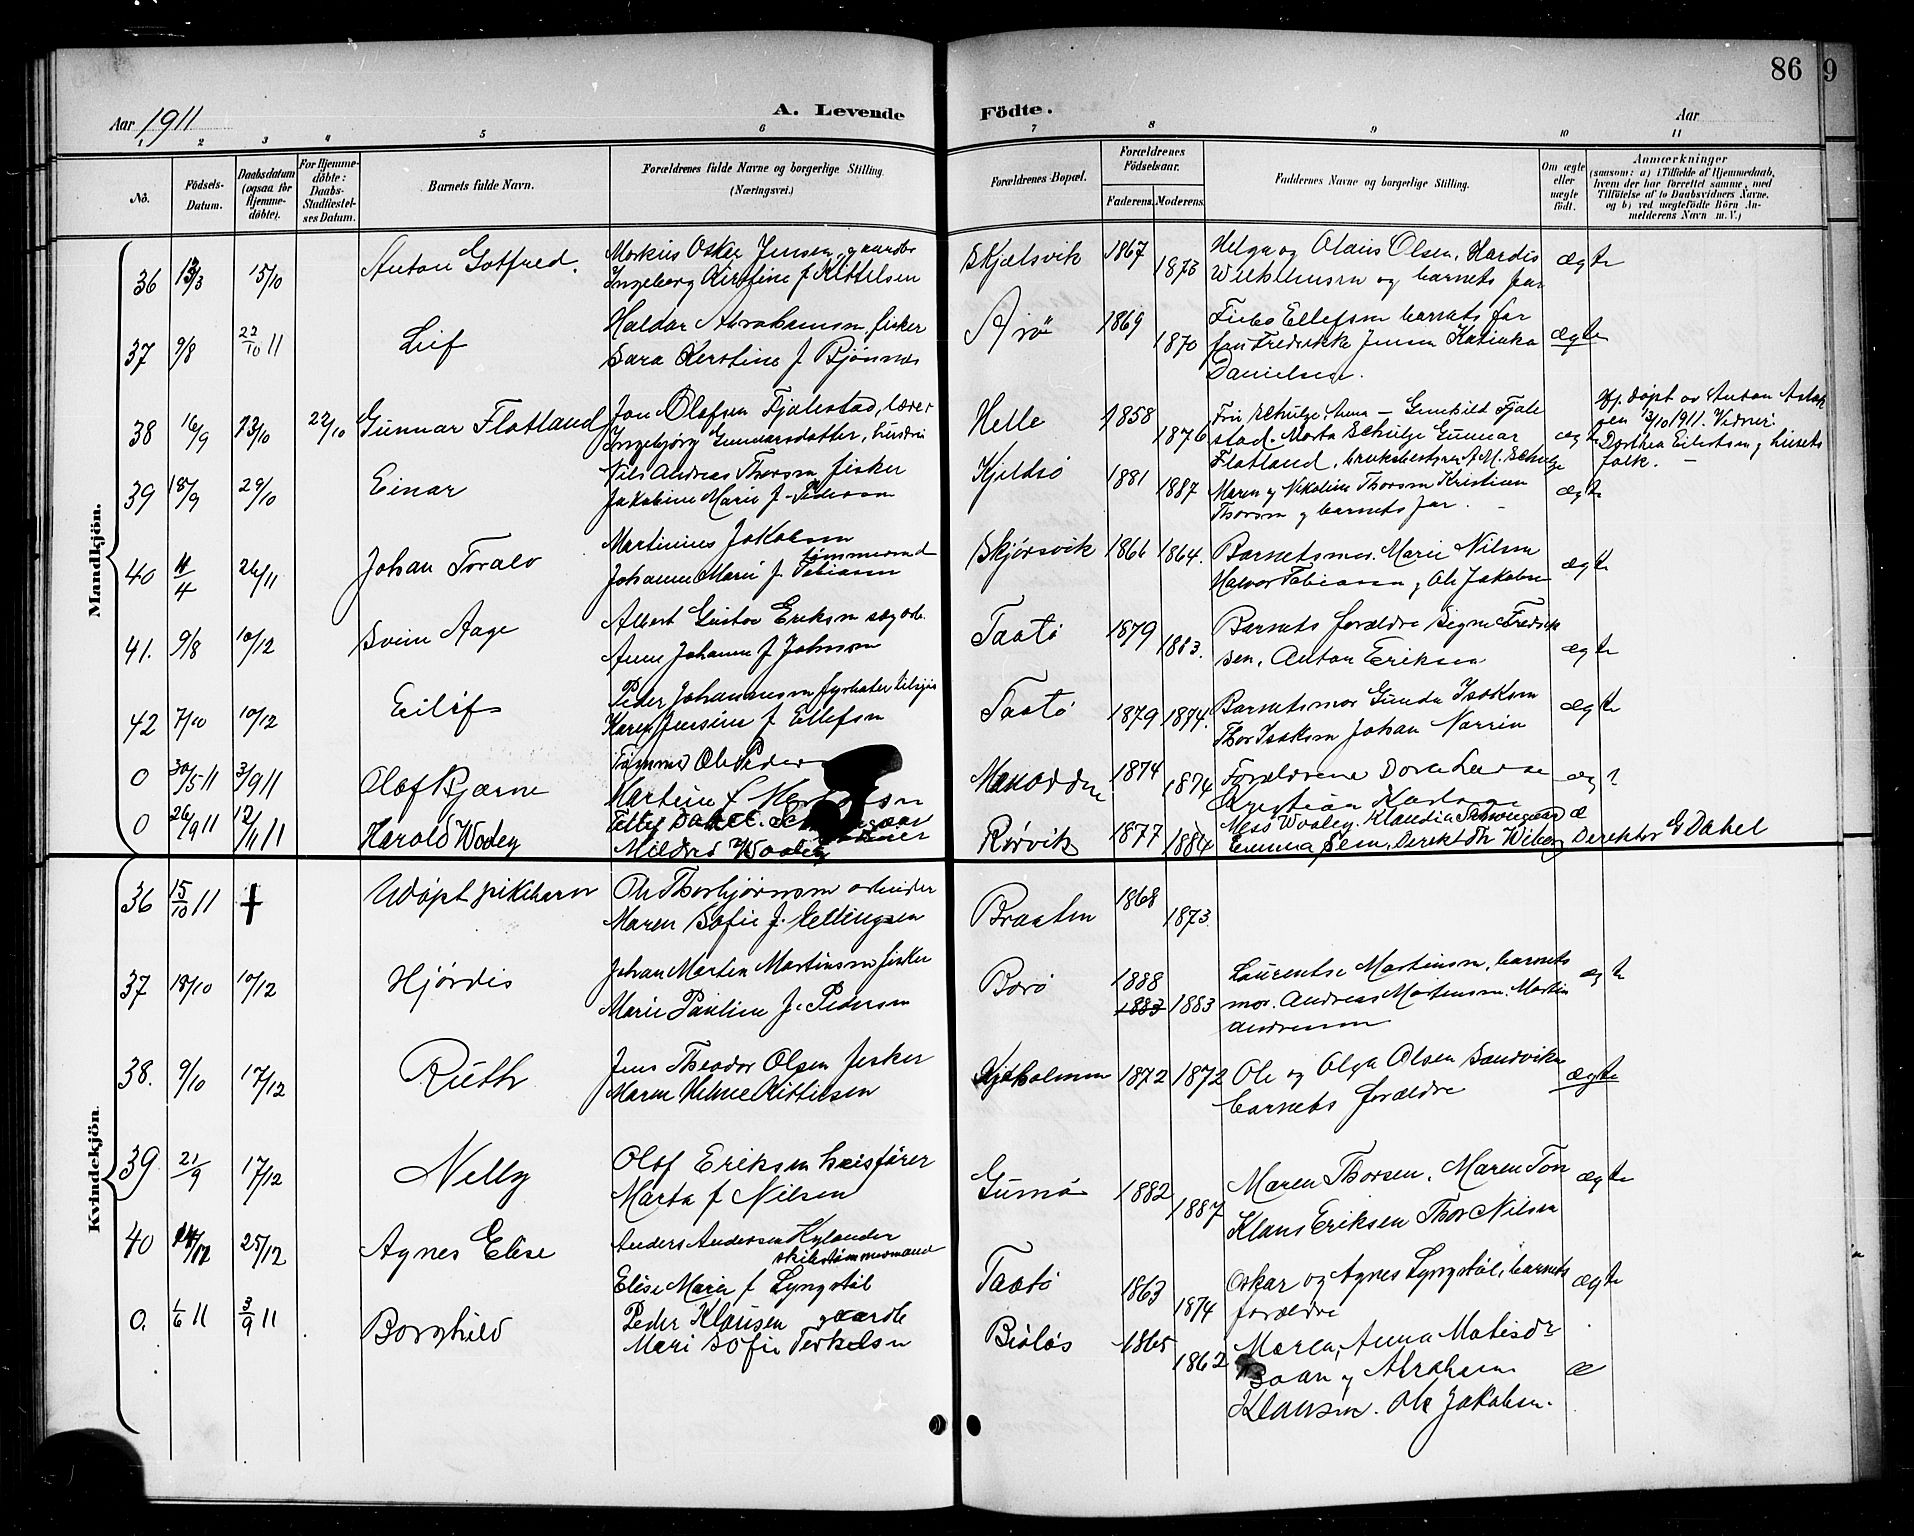 86 9
Aar 1911
A. Levende Födte.
Aar
1 2 3 4 5 6 7 8 9 10 11
No.
Födsels-
Datum.
Daabsdatum
(ogsaa for
Hjemme-
döbte).
For Hjemme-
döbte:
Daabs-
Stadfæstel-
ses Datum.
Barnets fulde Navn.
Forældrenes fulde Navne og borgerlige Stilling.
(Næringsvei.)
Forældrenes Bopæl.
Forældrenes
Födselsaar.
Faderens. Moderens.
Faddernes Navne og borgerlige Stilling.
Om ægte
eller
uægte
født.
Anmærkninger
(saasom: a) i Tilfælde af Hjemmedaab,
hvem der har forrettet samme, med
Tilföielse af to Daabsvidners Navne,
og b) ved uægtefödte Börn An-
melderens Navn m. V.)
Mandkjön.
36 15/10 Anton Gotfred. Markus Oskar Jensen, gaardbr
Ingeborg Kirstine f Kittelsen
Skjelsvik 1867 1873 Helga og Olaus Olsen, Hardis
og barnets far ægte
37 9/8 22/10 11 Leif Haldor Abrahamsen, fisker
Sara Kerstine f. Bjønnes
Arö 1869 1870 Ellefsen barnets far
Fredrikke Jensen Katinka
Danielsen. ægte
38 16/9 13/10 22/10 Gunnar Flatland Jon Olafsen Fjalestad, lærer
Ingebjörg Gunnarsdatter, hustru
Helle 1858 1876 Fru Schulge Anna - Gunhild Fjale
stad. Marta Schulge Gunnar
Flatland, bruksbestyrer A.M. Schulge
ægte Hj. døpt av Anton Aslak
sen 13/10 1911. Vidner:
Dorthea Eilertsen og husets
folk. -
39 18/9 29/10 Einar Nils Andreas Thorsen fisker
Jakobine Marie f. Pedersen
Kjeldsö 1881 1887 Maren og Nikoline Thorsen Kristian
Thorsen og barnets far. ægte
40 11/4 26/11 Johan Toralv Martinius Jakobsen
tømmermand
Johanne Marie f. Tobiassen
Skjörsvik 1866 1864. Barnets mor. Marie Nilsen
Halvor Tobiassen og Ole Jakobsen ægte
41. 9/8 10/12 Svein Aage Albert Gustav Eriksen
Anne Johanne f Johnsen
Taatö 1879 1883. Barnets forældre Signe Fredrik
sen, Anton Eriksen ægte
42 7/10 10/12 Eilif Peder Johannesen
Karen Jensine f Ellefsen
Taatö 1879 1874. Barnets mor Gunda Isaksen
Thor Isaksen Johan Narrin ægte
0 30/5 11 3/9 11 Olaf Bjarne Tömmerm Ole Peder
Martine f
1874 1874 Forældrene Dora
Kristian Karlsen
0 26/9 11 12/11 11 Harald Wooley
Mildred Wooley
Rörvik 1877 1884 Miss Wooley. Klaudia
Emma Direkt Th Wiborg æ Direktör G Dahl
Kvindekjön.
36 15/10 11 † Udøpt pikebarn Ole Thorbjørnsen arbeider
Maren Sofie f. Ellingsen
Braaten 1868 1873.
37 18/10 10/12 Hjördis Johan Martin Martinsen fisker
Marie Pauline f. Pedersen
Borö 1888
1883 1883 Laurentse Martinsen, barnets
mor. Andreas Martensen. Martin
Andresen ægte
38. 9/10 17/12 Ruth Jens Theodor Olsen fisker
Maren Helene Kittilsen
1872 1872 Ole og Olga Olsen Sandviken
barnets forældre ægte
39 21/9 17/12 Nelly Olaf Eriksen heisfører
Marta f Nilsen
Gumö 1882 1887 Maren Thorsen. Maren Ton
Klaus Eriksen Thor Nilsen ægte
40 25/12 Agnes Elise Anders Andersen Kylander
skibstømmermand
Elise Marie f Lyngstöl
Taatö 1863 1874 Oskar og Agnes Lyngstöl, barnets
forældre ægte
0. 1/6 11 3/9 11 Borghild Peder Klausen gaardb
Mari Sofie Terkelsen
1865 1862 Maren, Anna
og Abraham
Klausen. Ole Jakobsen. æ